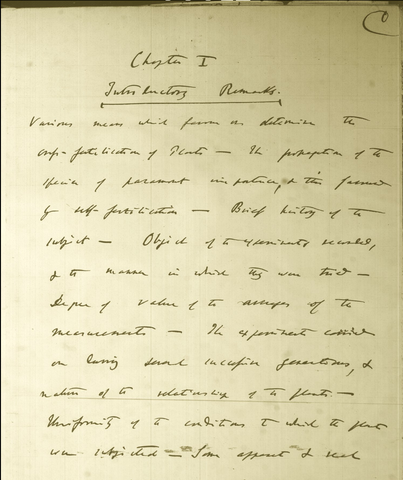 Chapter I
Introductory Remarks.
Various means which favour or determine the
cross-fertilisation of Plants — The propagation of the
species of paramount importance, & this favoured
by self-fertilisation — Brief history of the
subject — Object of the experiments recorded,
& the manner in which they were tried —
Degree of value of the averages of the
measurements — The experiments carried
on during several successive generations, &
nature of the relationship of the plants —
Uniformity of the conditions to which the plants
were subjected — Some apparent & real